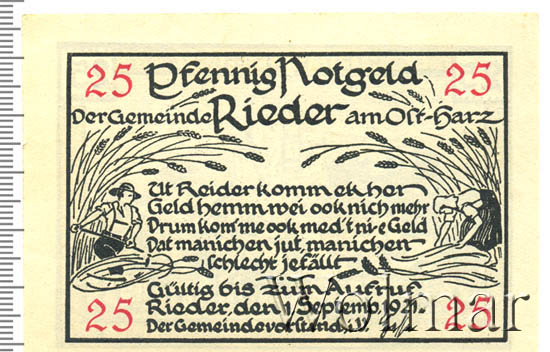 25 Pfennig Notgeld 25
Der Gemeinde Rieder am Ost-Harz
Ut Reider komm ek her
Geld hemm wei ook nich mehr
Drum kom'me ook med't ni-e Geld
Dat manichen jut, manichen
schlecht jefällt
Gültig bis zum Aufruf
25 Rieder, den 1. Septemb. 1921. 25
Der Gemeindevorstand, I.V.
Wolmar